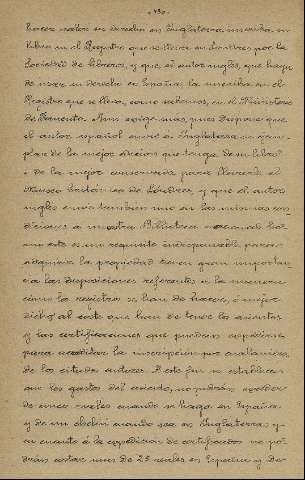 - 430 -
hacer valer su derecho en Inglaterra inscriba su
libro en el Registro que se lleva en Londres por la
Sociedad de libreros, y que, el autor inglés, que haya
de usar su derecho en España la inscriba en el
Registro que se lleva, como sabemos, en el Ministerio
de Fomento. Aun exige mas, pues dispone que
el autor español envie a Inglaterra un ejem-
plar de la mejor edicion que tenga de su libro
ó de la mejor conservada para llevarla al
Museo británico de Lóndres, y que el autor
inglés envie tambien uno en las mismas con
diciones á nuestra Biblioteca nacional.
este es un requisito indispensable para
adquirir la propiedad tienen gran importan
cia las disposiciones referentes a la manera
cómo los registros se han de hacer, ó mejor
dicho al coste que han de tener los asientos
y las certificaciones que puedan expedirse
para acreditar la inscripcion por cualquiera
de los citados autores. A este fin se establece
que los gastos del asiento, no podrán exceder
de cinco reales cuando se haga en España
y de un chelin cuando sea en Inglaterra y
en cuanto á la expedicion de certificados no po
drán costar mas de 25 reales en España y de